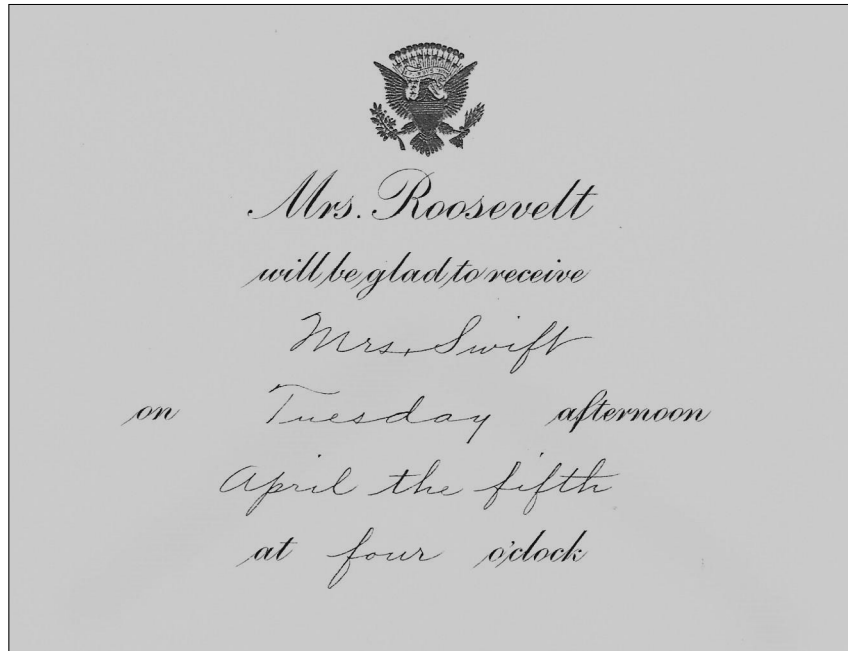 Mrs. Roosevelt
will be glad to receive
Mrs. Swift
on Tuesday afternoon
April the fifth
at four o'clock